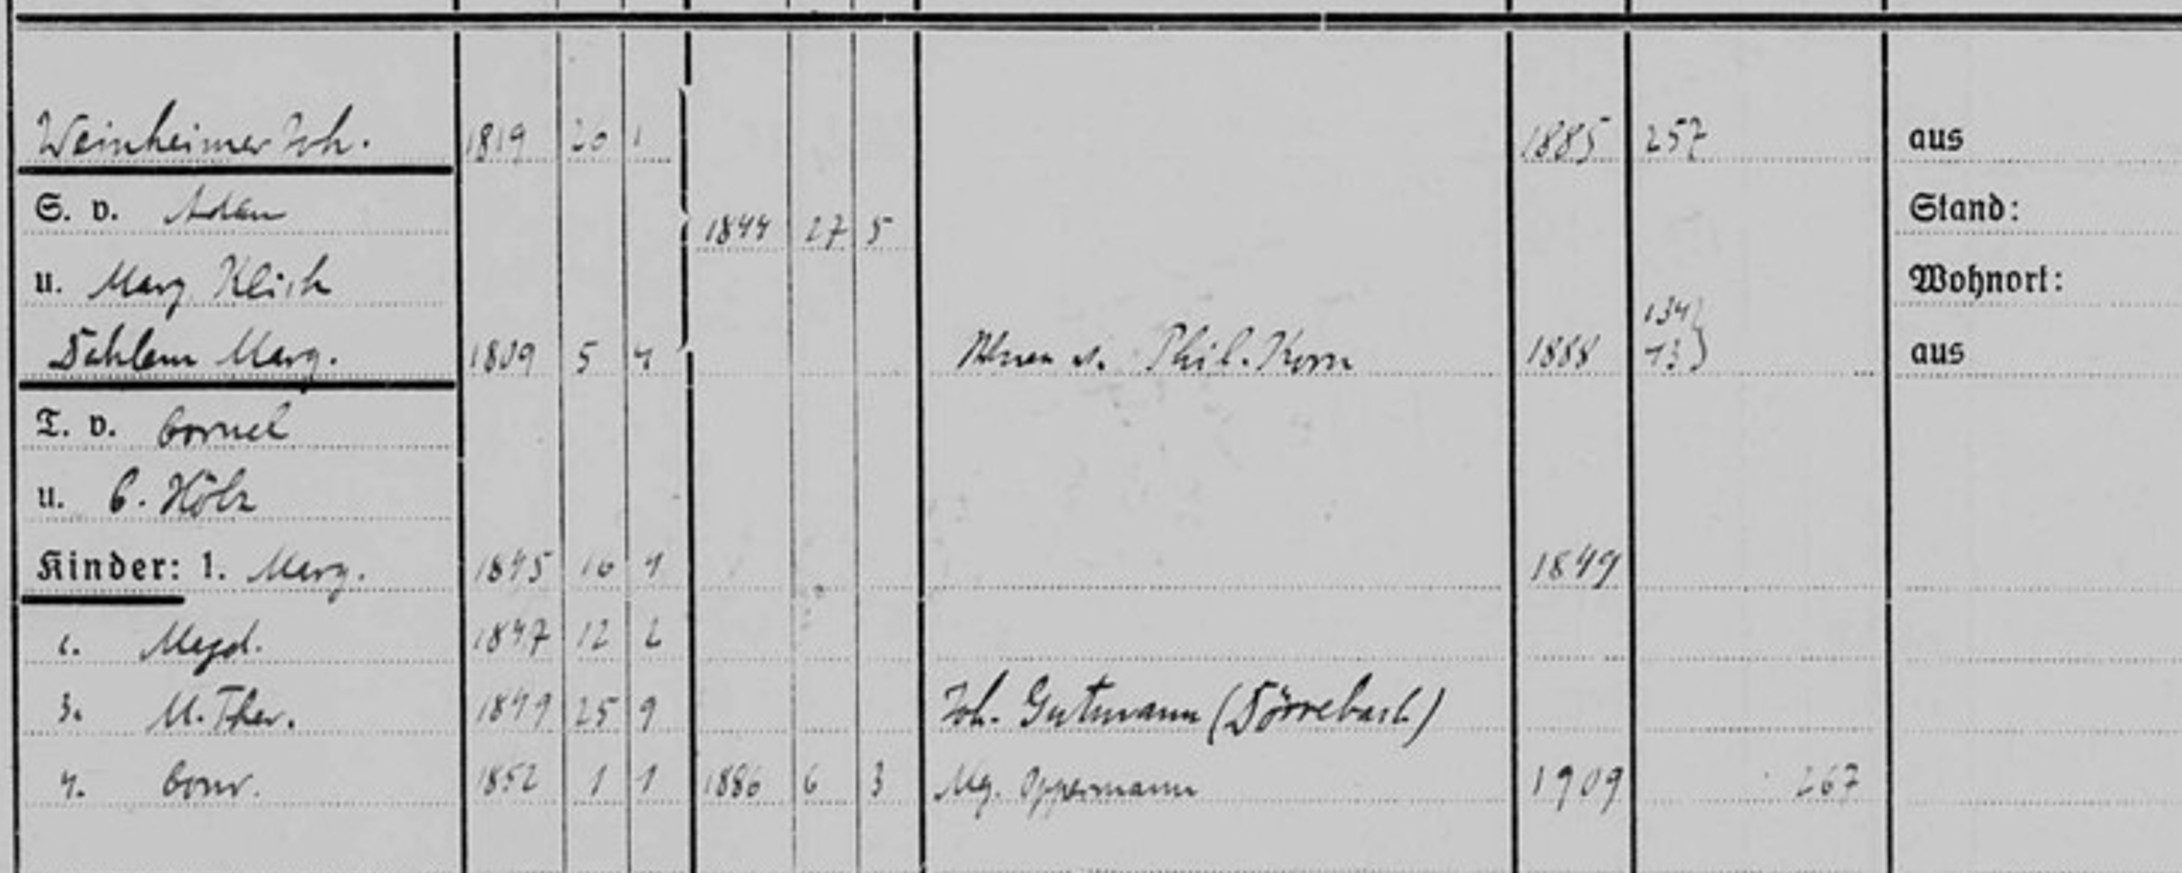 Weinheimer Joh. 1819 26 1 1885 257 aus
S. v. Adam Stand:
1844 27 5
u. Marg. Wohnort:
134
Dahlem Marg. 5 4 Phil. Korn 1888 13 aus
T. v. Cornel
u. C. Hölz
Kinder: 1. Marg. 1845 16 4 1849
2. Magd. 1847 12 2
3. M. Ther. 1849 25 9 Joh. Gutmann (Dörrebach)
4. Conr. 1852 1 1 1886 6 3 Mg. Oppermann 1909 267